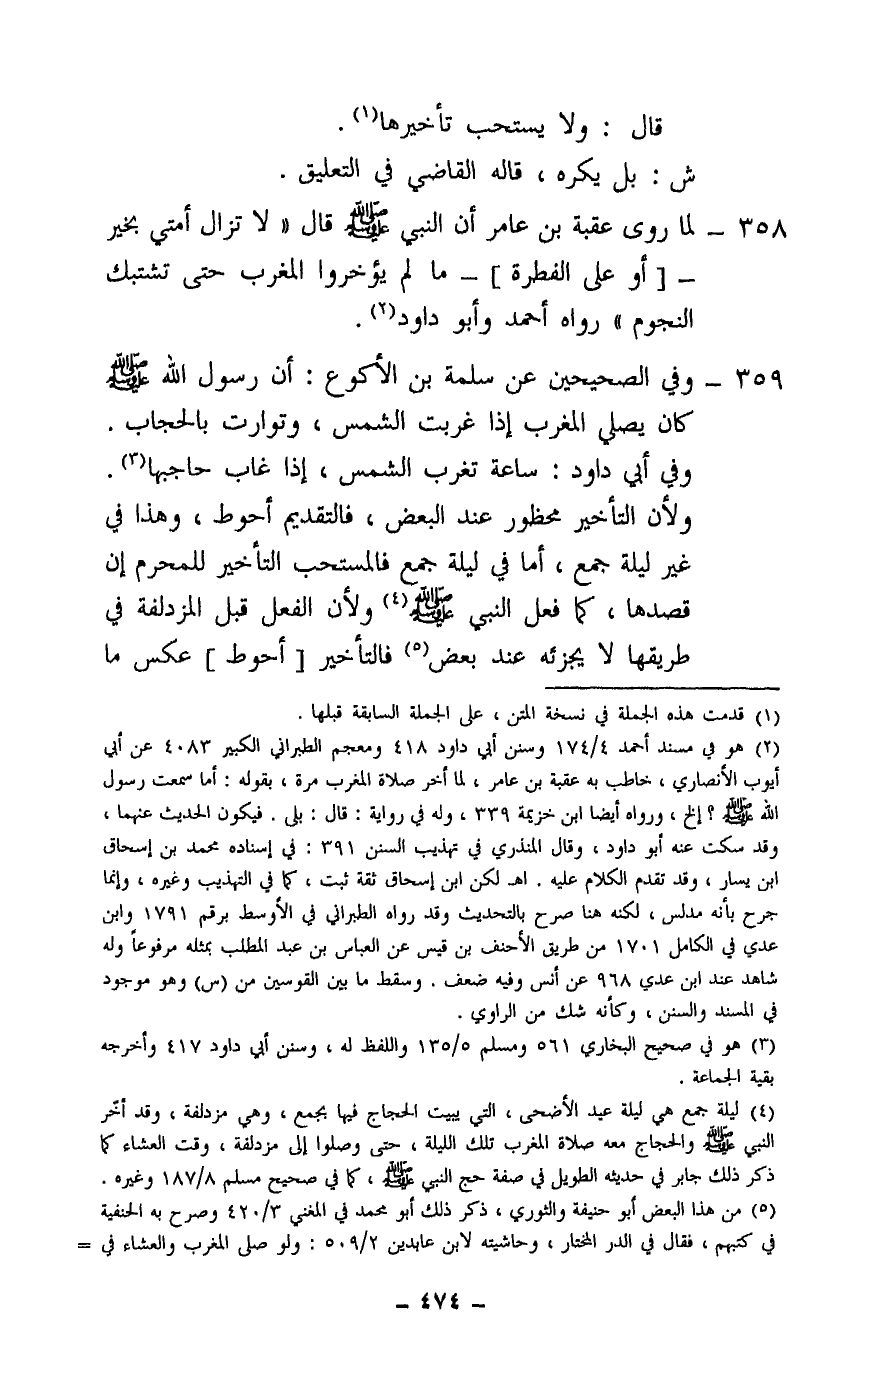 قال : ولا يستحب تأخيرها(١) .
ش : بل يكره ، قاله القاضي في التعليق .
٣٥٨ ـ لما روى عقبة بن عامر أن النبي ﷺ قال « لا تزال أمتي بخير
ـ [ أو على الفطرة ] ـ ما لم يؤخروا المغرب حتى تشتبك
النجوم » رواه أحمد وأبو داود(٢) .
٣٥٩ ـ وفي الصحيحين عن سلمة بن الأكوع : أن رسول الله ﷺ
كان يصلي المغرب إذا غربت الشمس ، وتوارت بالحجاب .
وفي أبي داود : ساعة تغرب الشمس ، إذا غاب حاجبها(٣) .
ولأن التأخير محظور عند البعض ، فالتقديم أحوط ، وهذا في
غير ليلة جمع ، أما في ليلة جمع فالمستحب التأخير للمحرم إن
قصدها ، كما فعل النبي ﷺ(٤) ولأن الفعل قبل المزدلفة في
طريقها لا يجزئه عند بعض(٥) فالتأخير [ أحوط ] عكس ما
(١) قدمت هذه الجملة في نسخة المتن ، على الجملة السابقة قبلها .
(٢) هو في مسند أحمد ١٧٤/٤ وسنن أبي داود ٤١٨ ومعجم الطبراني الكبير ٤٠٨٣ عن أبي
أيوب الأنصاري ، خاطب به عقبة بن عامر ، لما أخر صلاة المغرب مرة ، بقوله : أما سمعت رسول
الله ﷺ ؟ إلخ ، ورواه أيضا ابن خزيمة ٣٣٩ ، وله في رواية : قال : بلى . فيكون الحديث عنهما ،
وقد سكت عنه أبو داود ، وقال المنذري في تهذيب السنن ٣٩١ : في إسناده محمد بن إسحاق
ابن يسار ، وقد تقدم الكلام عليه . اهـ لكن ابن إسحاق ثقة ثبت ، كما في التهذيب وغيره ، وإنما
جرح بأنه مدلس ، لكنه هنا صرح بالتحديث وقد رواه الطبراني في الأوسط برقم ١٧٩١ وابن
عدي في الكامل ١٧٠١ من طريق الأحنف بن قيس عن العباس بن عبد المطلب بمثله مرفوعاً وله
شاهد عند ابن عدي ٩٦٨ عن أنس وفيه ضعف . وسقط ما بين القوسين من (س) وهو موجود
في المسند والسنن ، وكأنه شك من الراوي .
(٣) هو في صحيح البخاري ٥٦١ ومسلم ١٣٥/٥ واللفظ له ، وسنن أبي داود ٤١٧ وأخرجه
بقية الجماعة .
(٤) ليلة جمع هي ليلة عيد الأضحى ، التي يبيت الحجاج فيها بجمع ، وهي مزدلفة ، وقد أخّر
النبي ﷺ والحجاج معه صلاة المغرب تلك الليلة ، حتى وصلوا إلى مزدلفة ، وقت العشاء كما
ذكر ذلك جابر في حديثه الطويل في صفة حج النبي ﷺ ، كما في صحيح مسلم ١٨٧/٨ وغيره .
(٥) من هذا البعض أبو حنيفة والثوري ، ذكر ذلك أبو محمد في المغني ٤٢٠/٣ وصرح به الحنفية
في كتبهم ، فقال في الدر المختار ، وحاشيته لابن عابدين ٥٠٩/٢ : ولو صلى المغرب والعشاء في =
ـ ٤٧٤ ـ